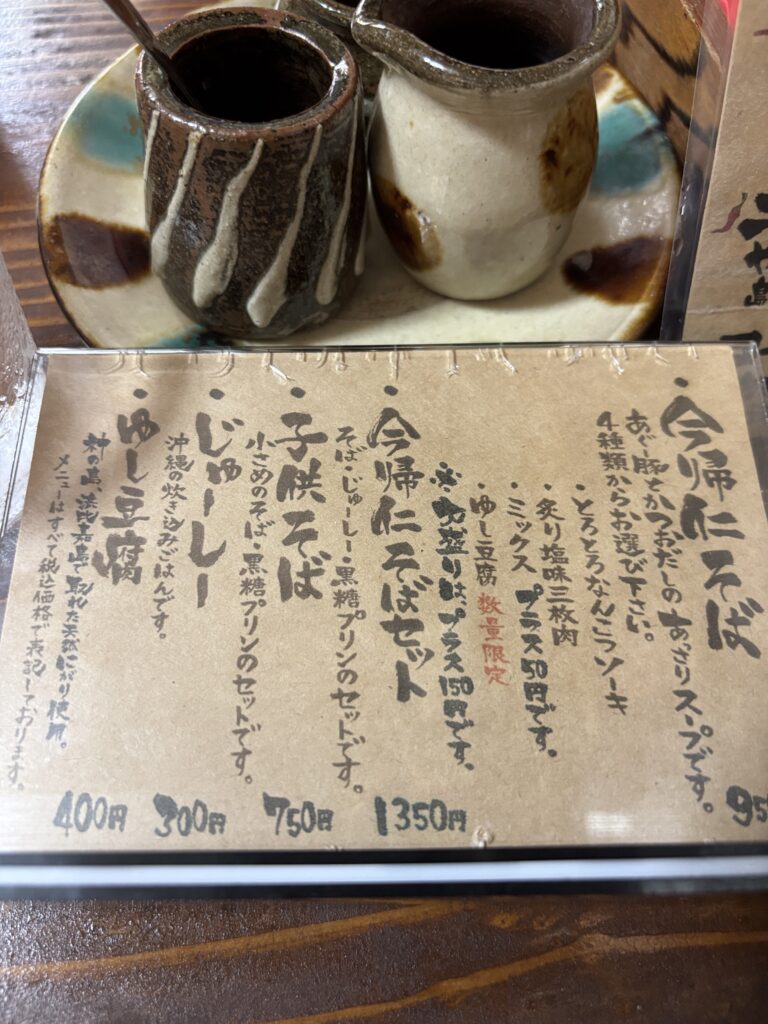 ・今帰仁そば
あぐー豚とかつおだしのあっさりスープです。
4種類からお選び下さい。
・とろとろなんこつソーキ
・炙り塩味三枚肉
・ミックス プラス50円です。
・ゆし豆腐 数量限定
※大盛りは、プラス150円です。
・今帰仁そばセット
そば・じゅーしー・黒糖プリンのセットです。
1350円
・子供そば
小さめのそば・黒糖プリンのセットです。
750円
・じゅーしー
沖縄の炊き込みごはんです。
300円
・ゆし豆腐
神の島、浜比嘉島で取れた天然にがり使用。
400円
メニューはすべて税込価格で表記しております。